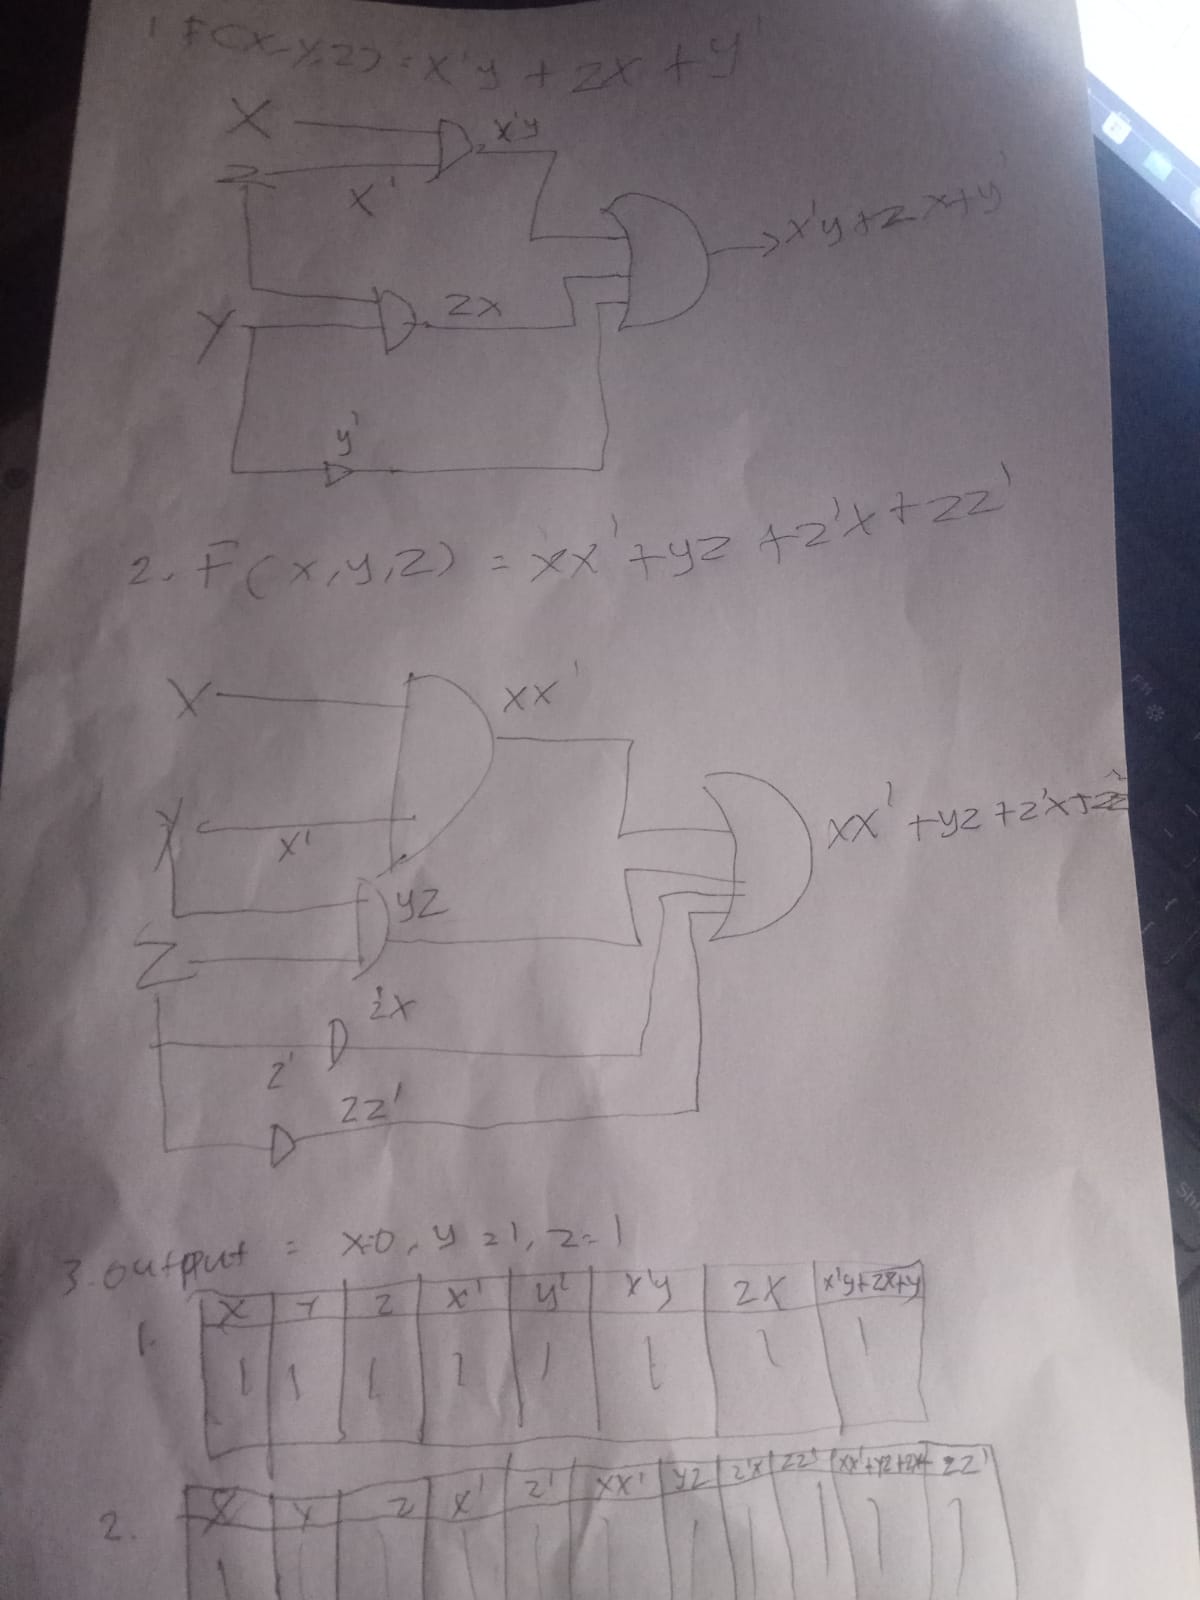 1 F(x,y,z) = x'y + zx + y'
X
x'y
Z
x'
x'y+zx+y'
zx
Y
y'
2. F(x,y,z) = xx' + yz + z'x + zz'
X
xx'
Y
x'
xx' + yz + z'x + zz'
yz
Z
z'x
z'
zz'
3. output = x=0, y=1, z=1
1. X Y Z x' y' x'y zx x'y+zx+y
1 1 1 1 1 1 1 1
2. X Y Z x' z' xx' yz z'x zz' xx'+yz+zx+ zz'
1 1 1 1 1 1 1 1 1 1 1